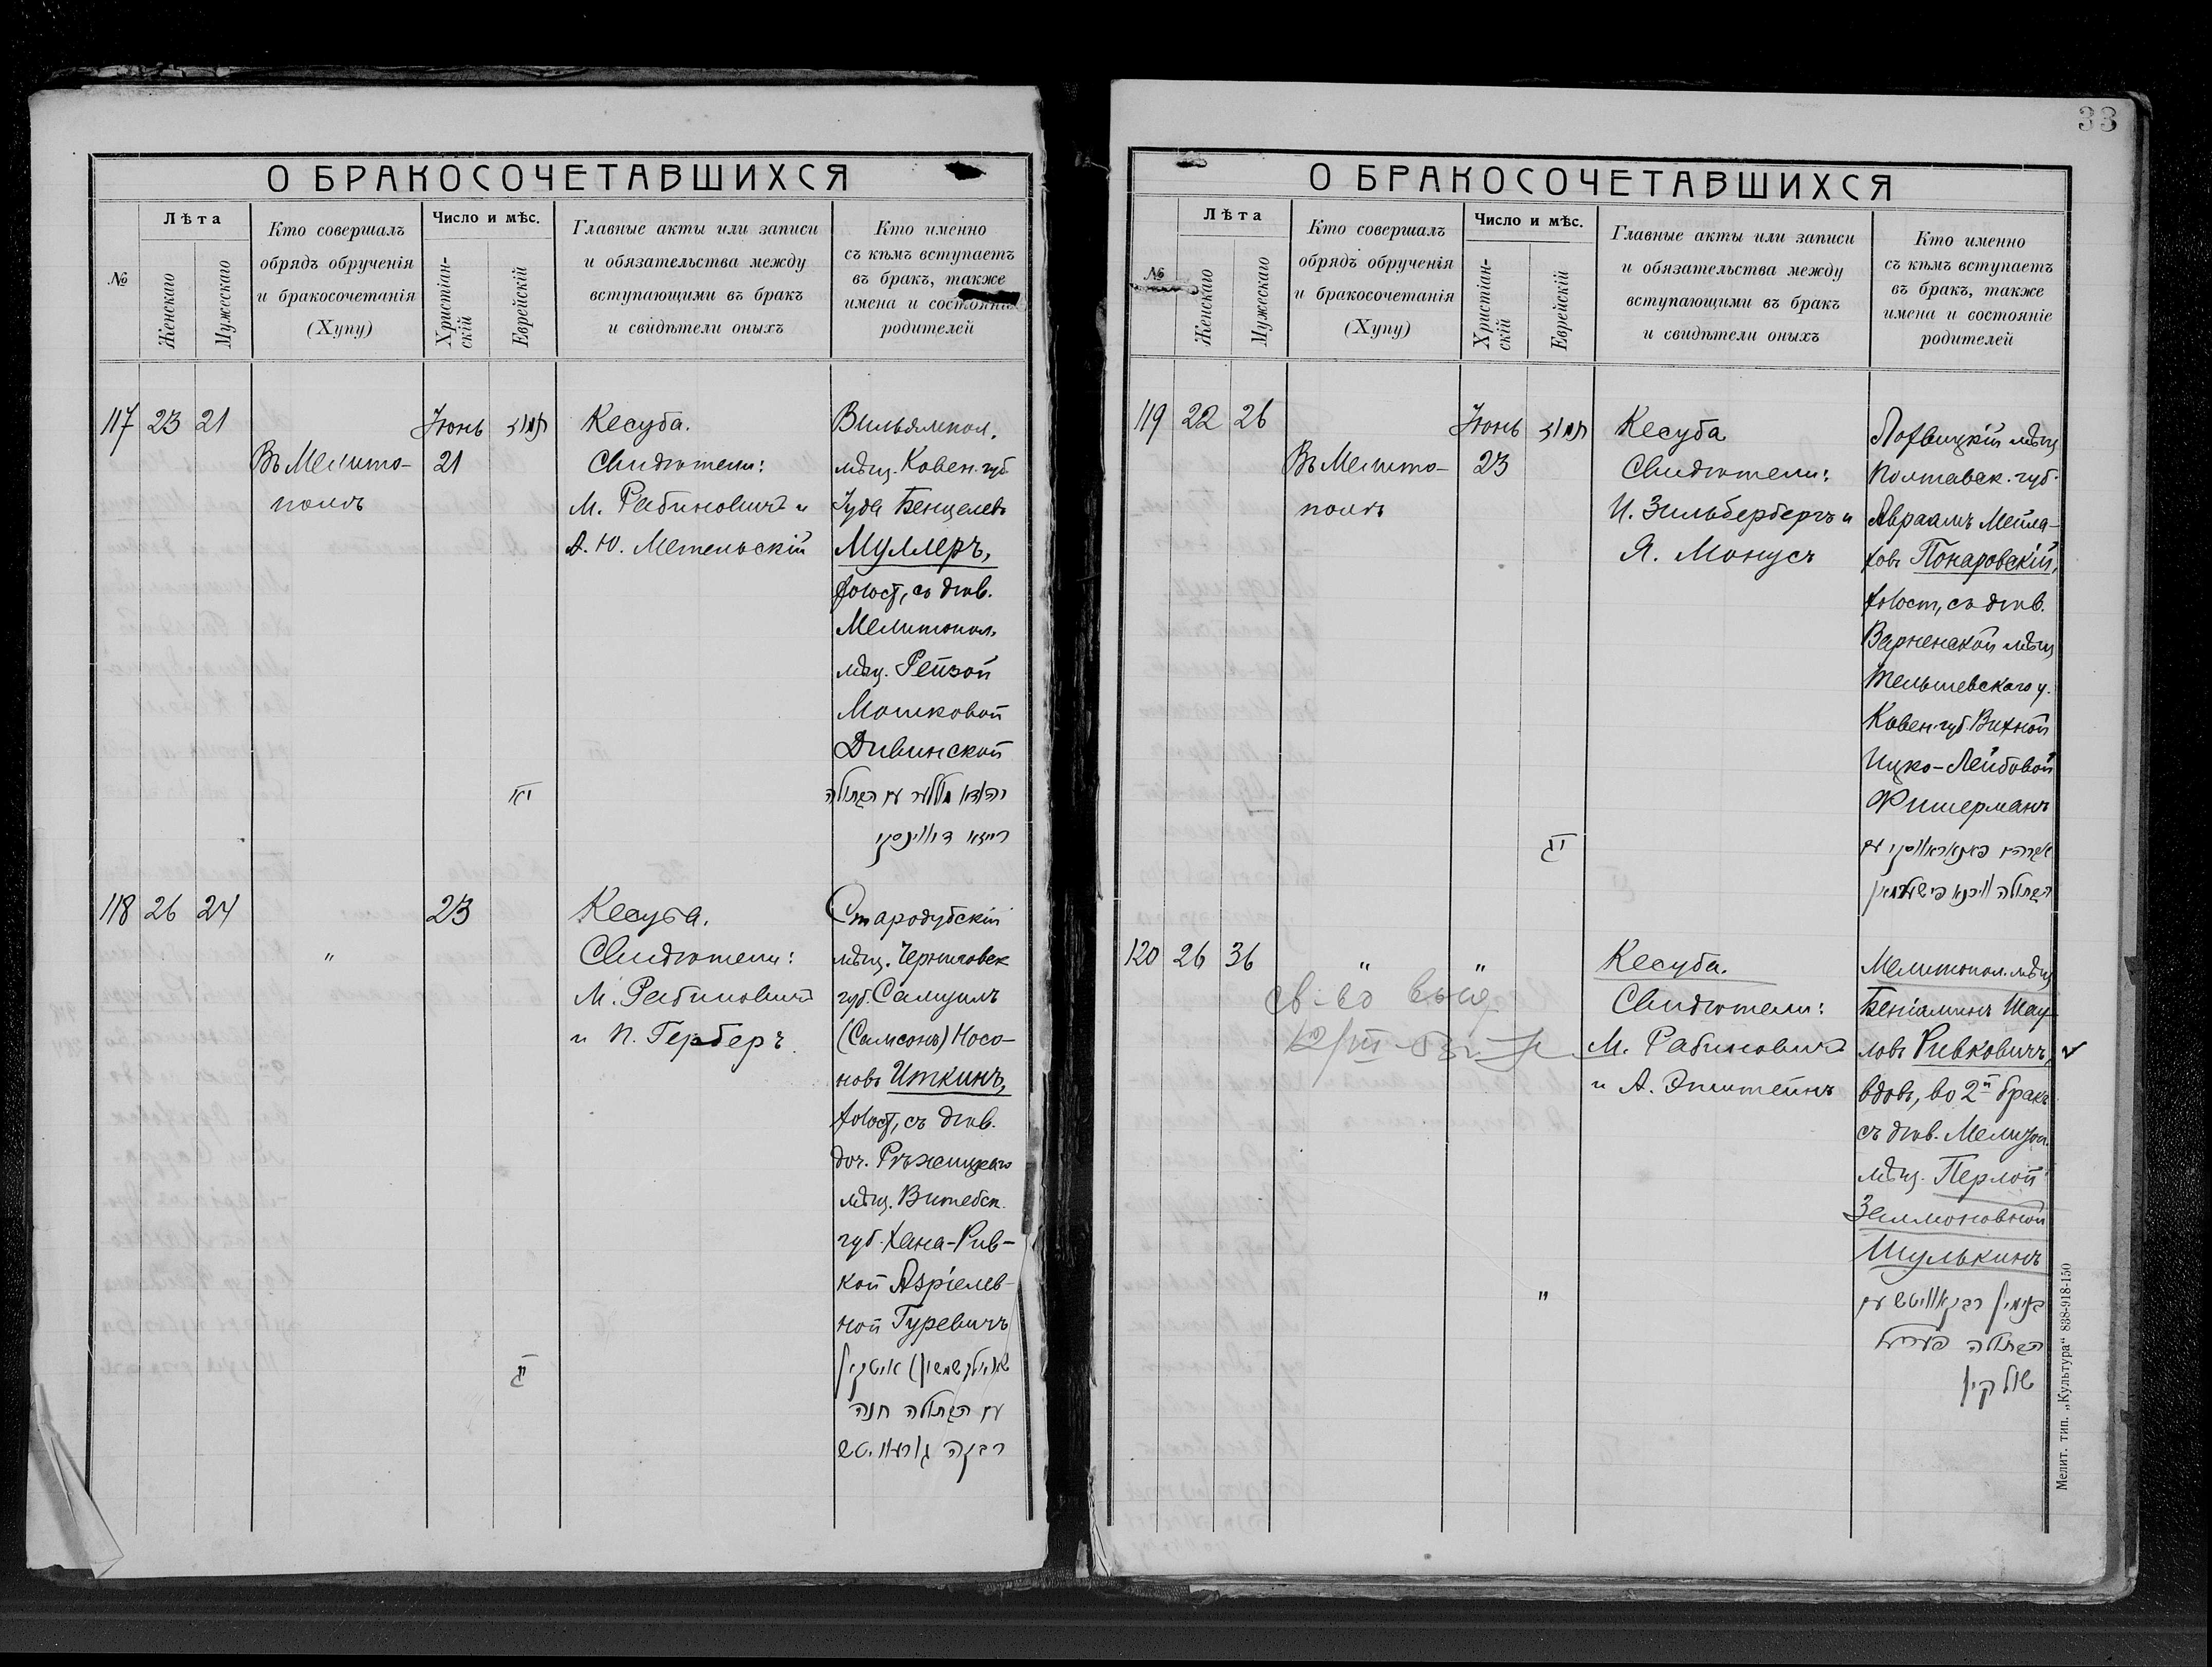 О БРАКОСОЧЕТАВШИХСЯ
№
Лѣта
Женскаго
Мужескаго
Кто совершалъ
обрядъ обрученія
и бракосочетанія
(Хупу)
Число и мѣс.
Христіан-
скій
Еврейскій
Главные акты или записи
и обязательства между
вступающими въ бракъ
и свидѣтели оныхъ
Кто именно
съ кѣмъ вступаетъ
въ бракъ, также
имена и состояніе
родителей
117 23 21
Въ Мелито-
полѣ
Іюнь
21
תמוז
יא
Кесуба.
Свидѣтели:
М. Рабиновичъ и
А. Ю. Метельскій
Вильямпол.
мѣщ. Ковен. губ.
Іуда Бенцелевъ
Муллеръ,
холост, съ дѣв.
Мелитопол.
мѣщ. Рейзой
Мошковой
Дивинской
יהודא מוללער עם הבתולה
רייזא דיווינסקי
118 26 24
"
23
יג
Кесуба.
Свидѣтели:
М. Рабиновичъ
и П. Герберъ
Стародубскій
мѣщ. Черниговск
губ. Самуилъ
(Самсонъ) Носо-
новъ Иткинъ,
холост, съ дѣв.
доч. Рѣжицкаго
мѣщ. Витебск.
губ. Хана-Рив-
кой Азріелев-
ной Гуревичъ
איטקין
עם הבתולה חנה
רבקה גורעוויטש
33
О БРАКОСОЧЕТАВШИХСЯ
№
Лѣта
Женскаго
Мужескаго
Кто совершалъ
обрядъ обрученія
и бракосочетанія
(Хупу)
Число и мѣс.
Христіан-
скій
Еврейскій
Главные акты или записи
и обязательства между
вступающими въ бракъ
и свидѣтели оныхъ
Кто именно
съ кѣмъ вступаетъ
въ бракъ, также
имена и состояніе
родителей
119 22 26
Въ Мелито-
полѣ
Іюнь
23
תמוז
יג
Кесуба
Свидѣтели:
И. Зильбербергъ и
Я. Монусъ
Лохвицкій мѣщ
Полтавск. губ.
Авраамъ Мейла-
ховъ Покаровскій,
холост, съ дѣв.
Варненской мѣщ
Тельшевскаго у.
Ковен. губ. Вихной
Ицко-Лейбовой
Фишерманъ
אברהם פאקאראווסקי עם
הבתולה וויכנא פישערמאן
120 26 36
" "
св-во выд
"
Кесуба.
Свидѣтели:
М. Рабиновичъ
и А. Эпштейнъ
Мелитопол. мѣщ
Беніаминъ Шау-
ловъ Ривковичъ,
вдовъ, во 2й бракъ
съ дѣв. Мелитоп.
мѣщ. Перлой
Залмоновной
Шулькинъ
בנימין רבקאוויטש עם
הבתולה פערעל
שולקין
Мелит. тип. „Культура“ 838-918-150